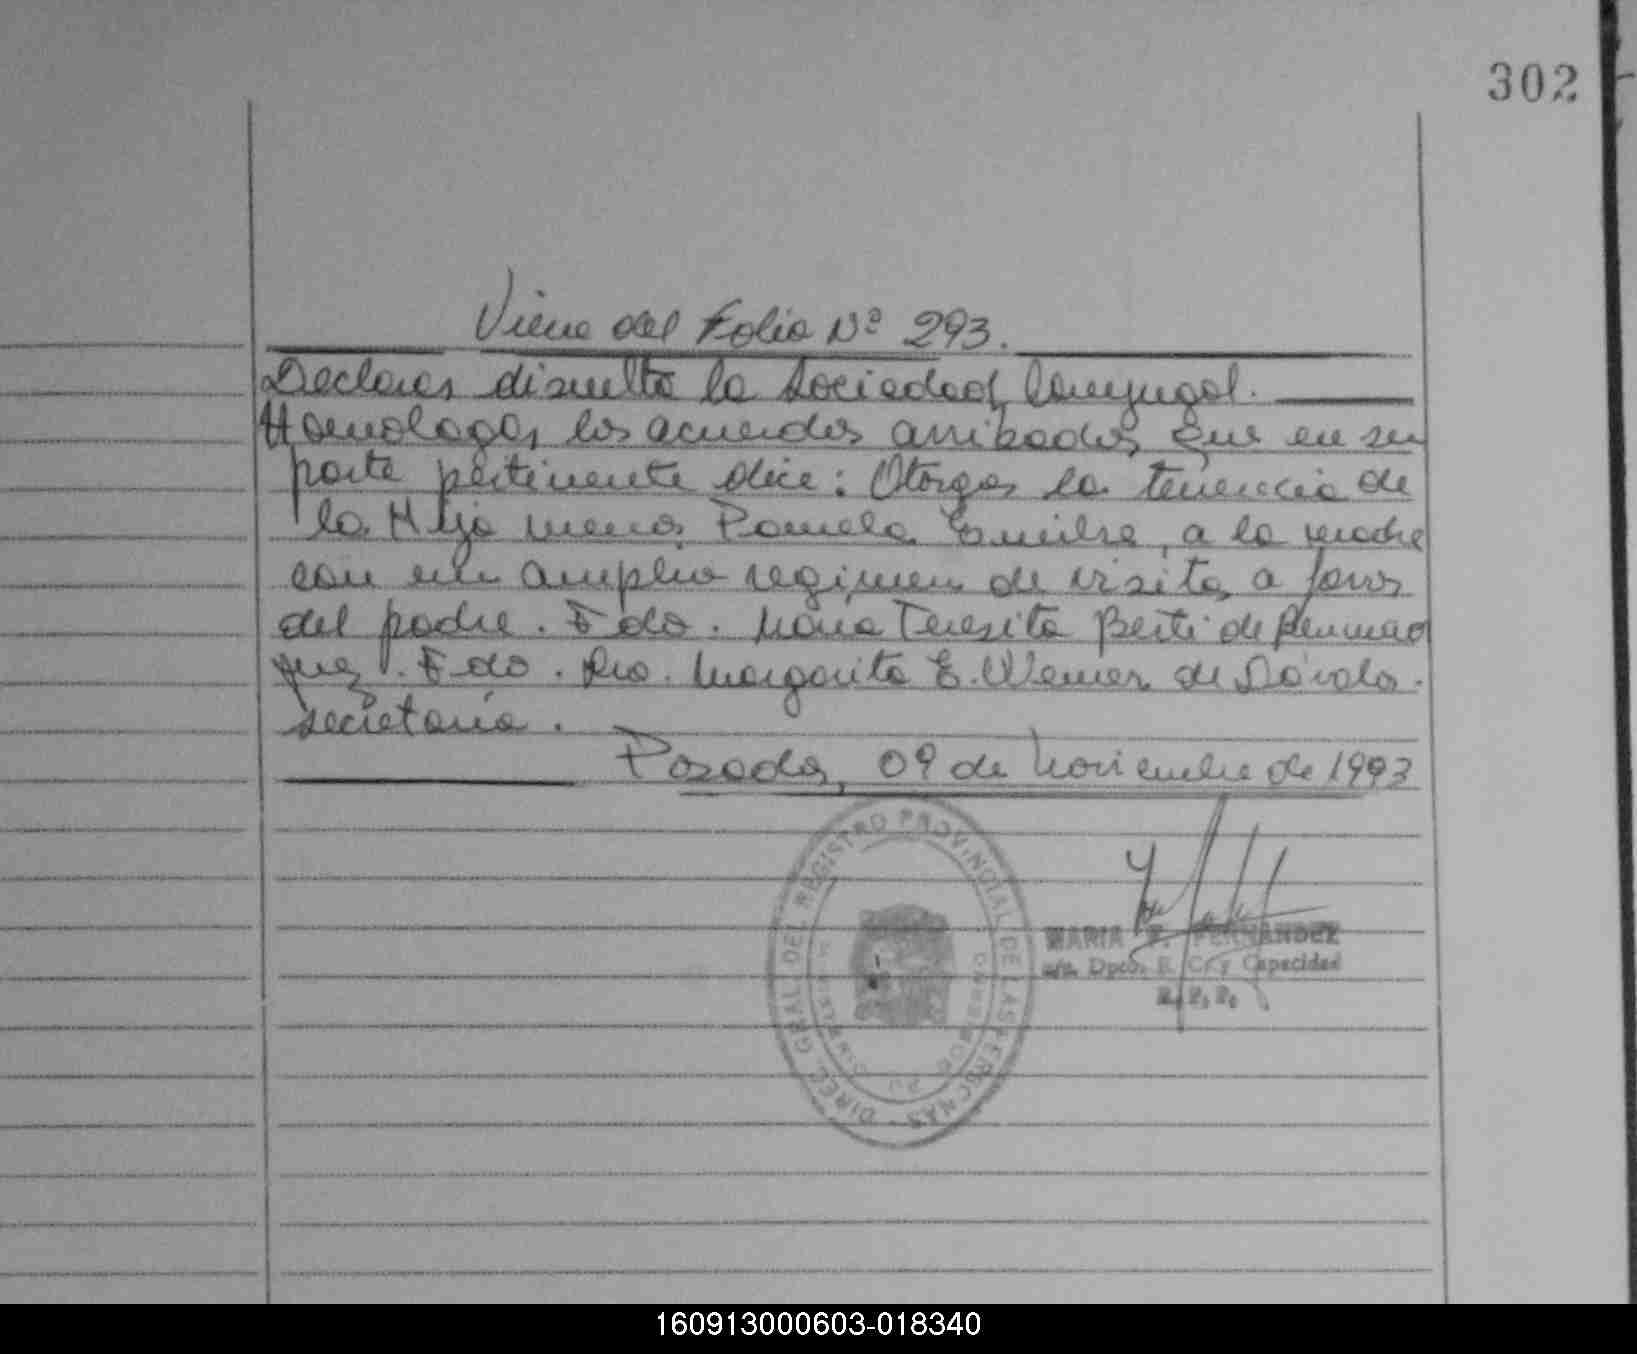 302
Viene del Folio Nº 293.
Declarar disuelta la Sociedad Conyugal.
Homologar los acuerdos arribados, que en su
parte pertinente dice: Otorgar la tenencia de
la Hija menor Pamela, a la madre
con un amplio regimen de visita a favor
del padre. Fdo. Maria Teresita Berti de
juez. Fdo. Dra. Margarita E. de Dávalos.
secretaria.
Posadas, 09 de Noviembre de 1993
DIREC. GRAL. DEL REGISTRO PROVINCIAL DE LAS PERSONAS
MARIA FERNANDEZ
Dpto. E. C. y Capacidad
R. P. P.
160913000603-018340